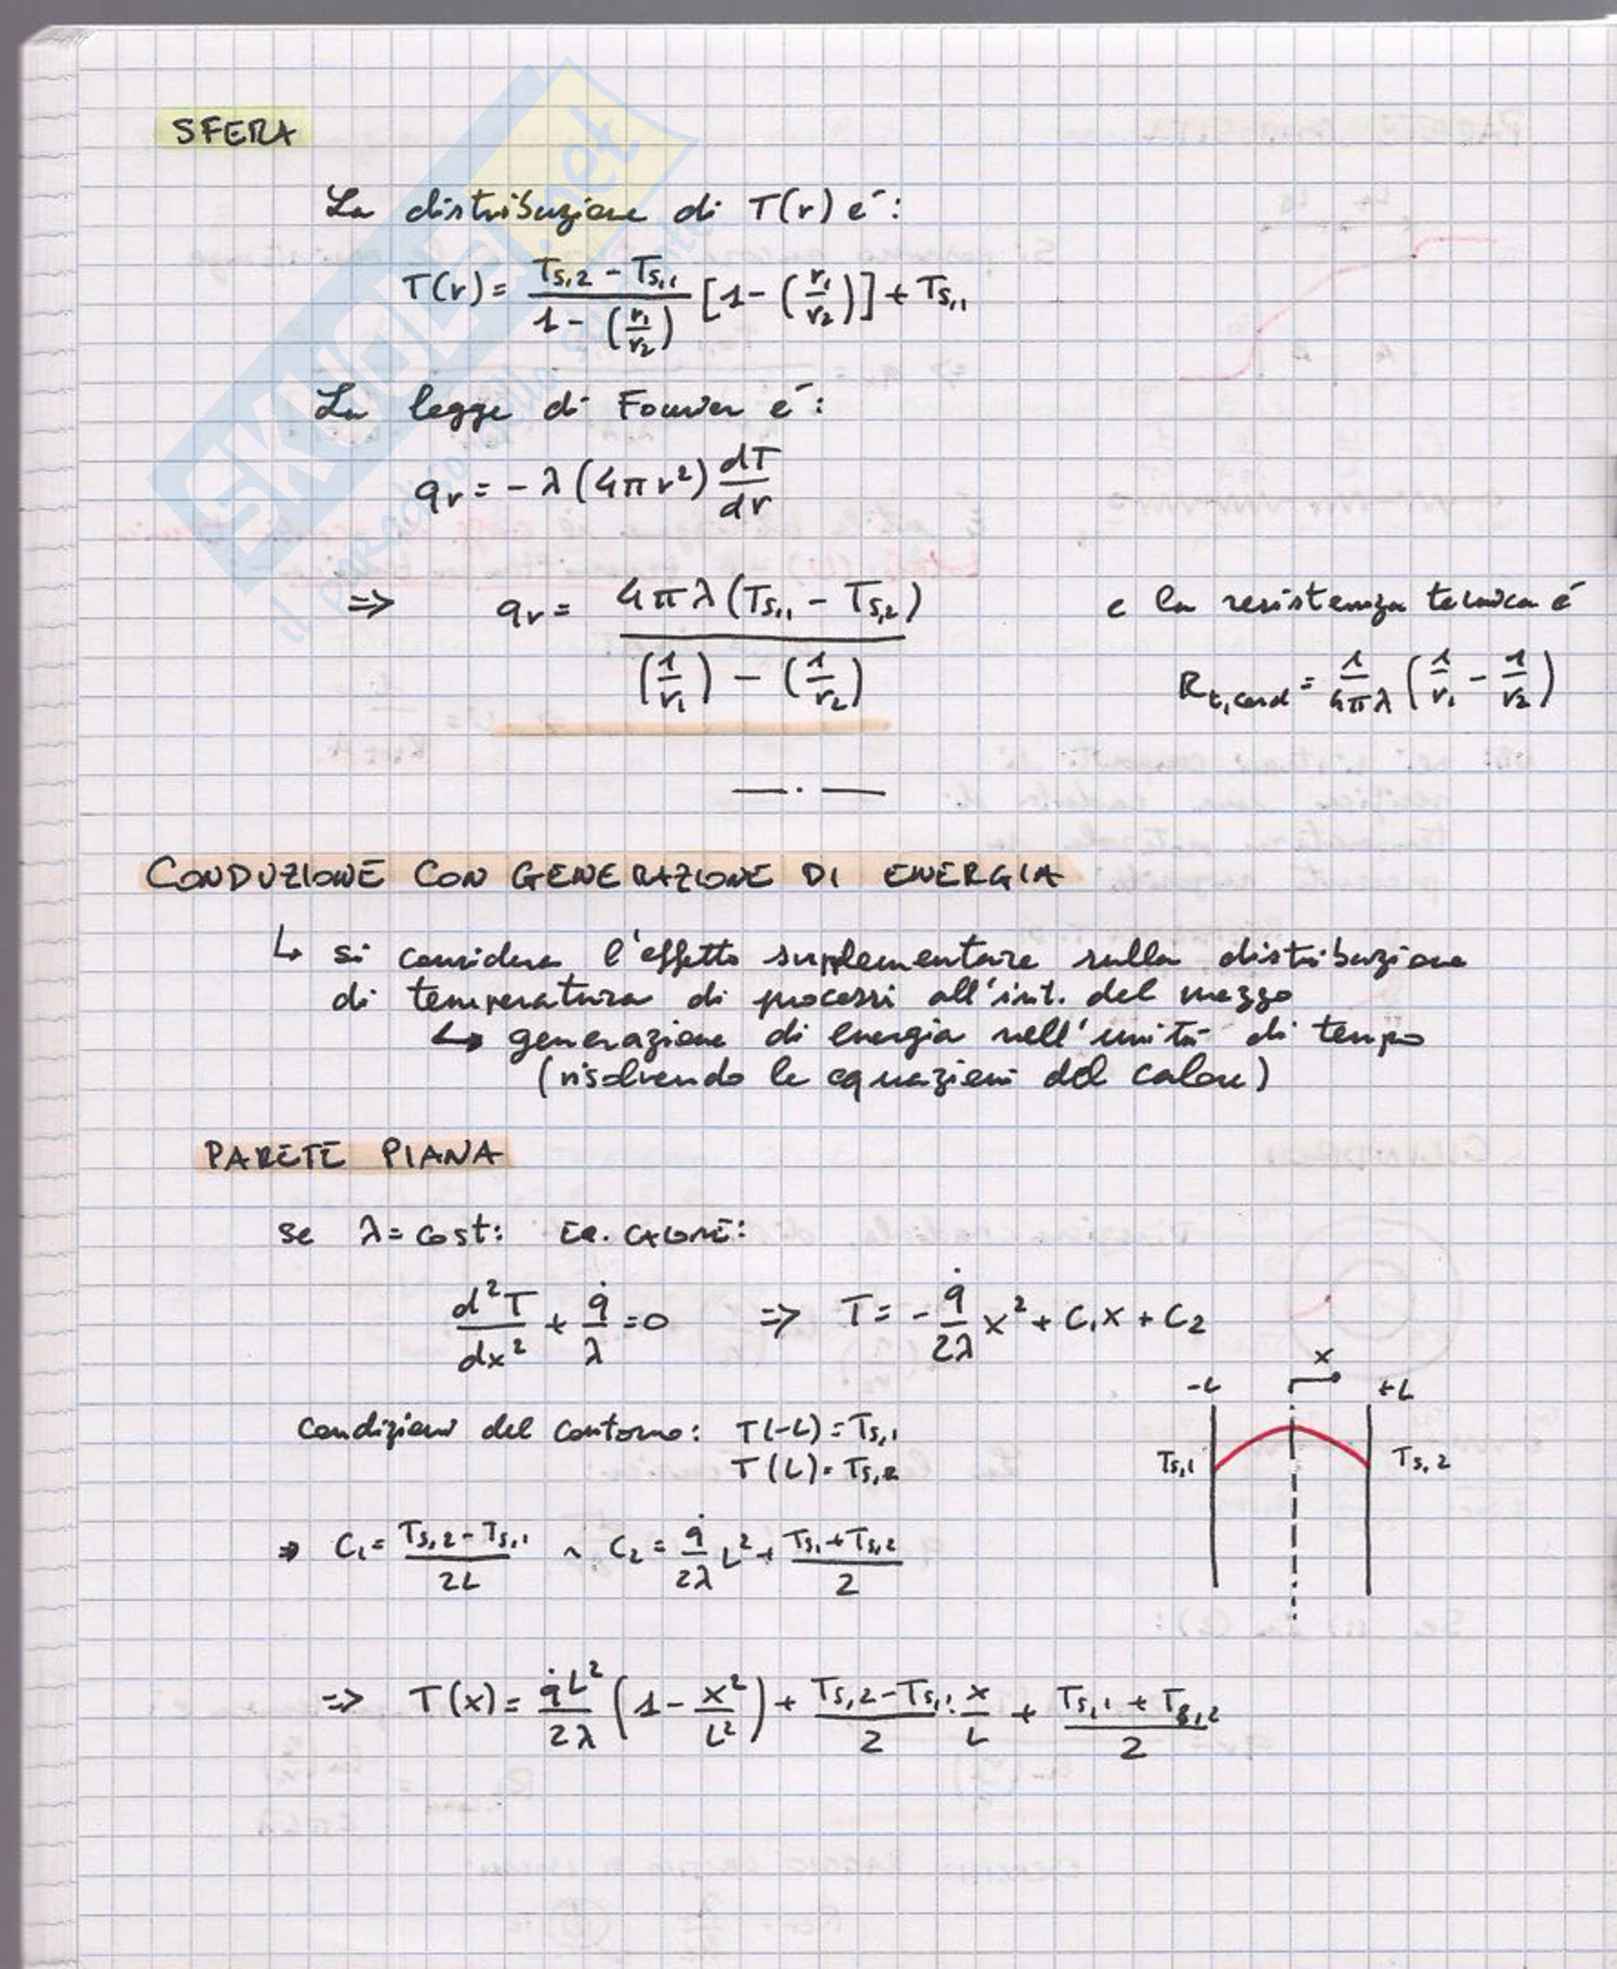 SFERA
La distribuzione di T(r) e´:
T(r) = \frac{Ts,2 - Ts,1}{1 - (\frac{r1}{r2})} [1 - (\frac{r1}{r2})] + Ts,1
La legge di Fourier e´:
qr = - λ (4πr²) \frac{dT}{dr}
=> qr = \frac{4πλ(Ts,1 - Ts,2)}{(\frac{1}{r1}) - (\frac{1}{r2})} e la resistenza termica é
Rt,cond = \frac{1}{4πλ} (\frac{1}{r1} - \frac{1}{r2})
CONDUZIONE CON GENERAZIONE DI ENERGIA
↳ si considera l'effetto supplementare sulla distribuzione
di temperatura di processi all'int. del mezzo
↳ generazione di energia nell'unità di tempo
(risolvendo le equazioni del calore)
PARETE PIANA
se λ = cost: EQ. CALORE:
\frac{d²T}{dx²} + \frac{q̇}{λ} = 0 => T = - \frac{q̇}{2λ} x² + C1x + C2
x
-L +L
Condizioni del contorno: T(-L) = Ts,1
T(L) = Ts,2
Ts,1 Ts,2
=> C1 = \frac{Ts,2 - Ts,1}{2L} ~ C2 = \frac{q̇}{2λ} L² + \frac{Ts,1 + Ts,2}{2}
=> T(x) = \frac{q̇L²}{2λ} (1 - \frac{x²}{L²}) + \frac{Ts,2 - Ts,1}{2} · \frac{x}{L} + \frac{Ts,1 + Ts,2}{2}
SKUOLA.net